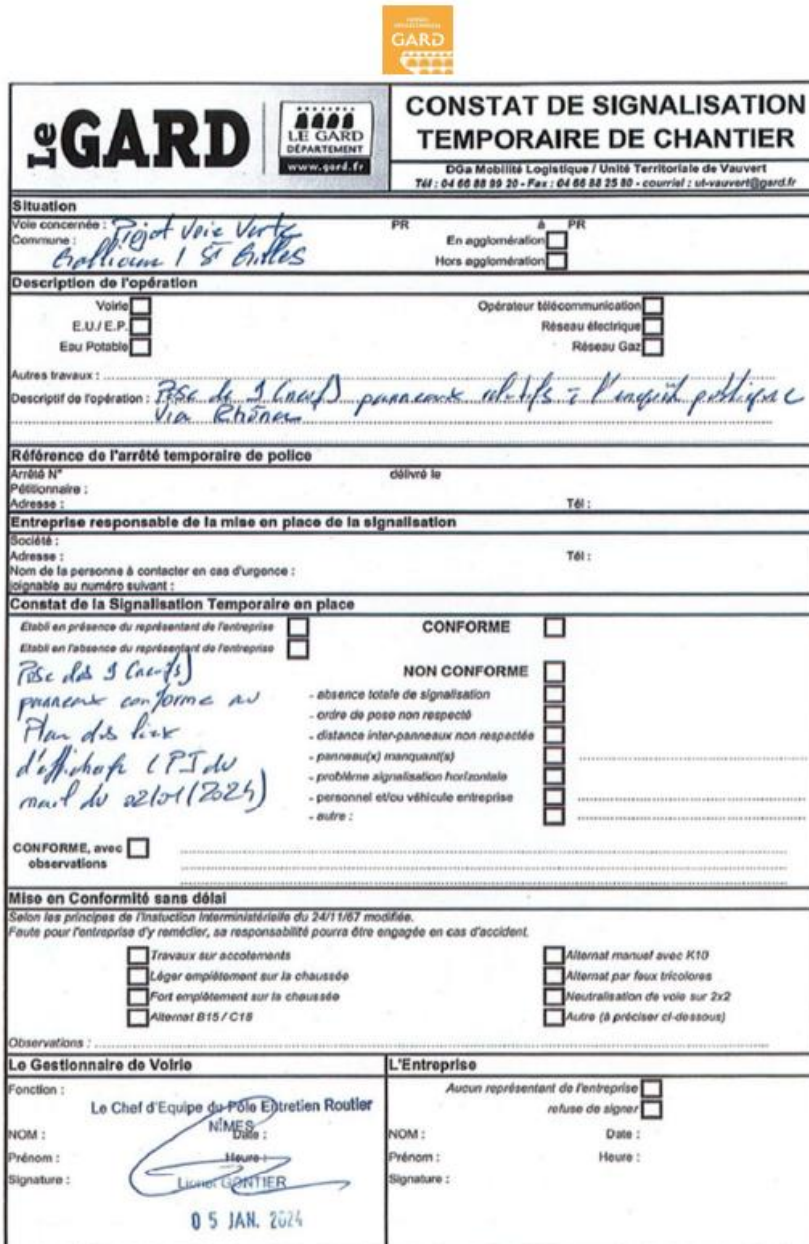 GARD
Le GARD
LE GARD
DÉPARTEMENT
www.gard.fr
CONSTAT DE SIGNALISATION
TEMPORAIRE DE CHANTIER
DGa Mobilité Logistique / Unité Territoriale de Vauvert
Tél : 04 66 88 99 20 - Fax : 04 66 88 25 80 - courriel : ut-vauvert@gard.fr
Situation
Voie concernée : Projet Voie Verte PR à PR
Commune : St Gilles
En agglomération
Hors agglomération
Description de l'opération
Voirie Opérateur télécommunication
E.U./ E.P. Réseau électrique
Eau Potable Réseau Gaz
Autres travaux :
Descriptif de l'opération : Pose de 9 (neuf) panneaux relatifs à l'enquête publique
Via Rhôna
Référence de l'arrêté temporaire de police
Arrêté N° délivré le
Pétitionnaire :
Adresse : Tél :
Entreprise responsable de la mise en place de la signalisation
Société :
Adresse : Tél :
Nom de la personne à contacter en cas d'urgence :
oignable au numéro suivant :
Constat de la Signalisation Temporaire en place
Etabli en présence du représentant de l'entreprise CONFORME
Etabli en l'absence du représentant de l'entreprise
Pose des 9 (neufs)
panneaux conforme au
Plan des lieux
d'affichage (PJ du
mail du 02/01/2024)
NON CONFORME
- absence totale de signalisation
- ordre de pose non respecté
- distance inter-panneaux non respectée
- panneau(x) manquant(s)
- problème signalisation horizontale
- personnel et/ou véhicule entreprise
- autre :
CONFORME, avec
observations
Mise en Conformité sans délai
Selon les principes de l'Instuction Interministérielle du 24/11/67 modifiée.
Faute pour l'entreprise d'y remédier, sa responsabilité pourra être engagée en cas d'accident.
Travaux sur accotements Alternat manuel avec K10
Léger empiètement sur la chaussée Alternat par feux tricolores
Fort empiètement sur la chaussée Neutralisation de voie sur 2x2
Alternat B15 / C18 Autre (à préciser ci-dessous)
Observations :
Le Gestionnaire de Voirie
Fonction :
Le Chef d'Equipe du Pôle Entretien Routier
NÎMES
NOM : Date :
Prénom : Heure :
Signature : Lionel GONTIER
05 JAN. 2024
L'Entreprise
Aucun représentant de l'entreprise
refuse de signer
NOM : Date :
Prénom : Heure :
Signature :